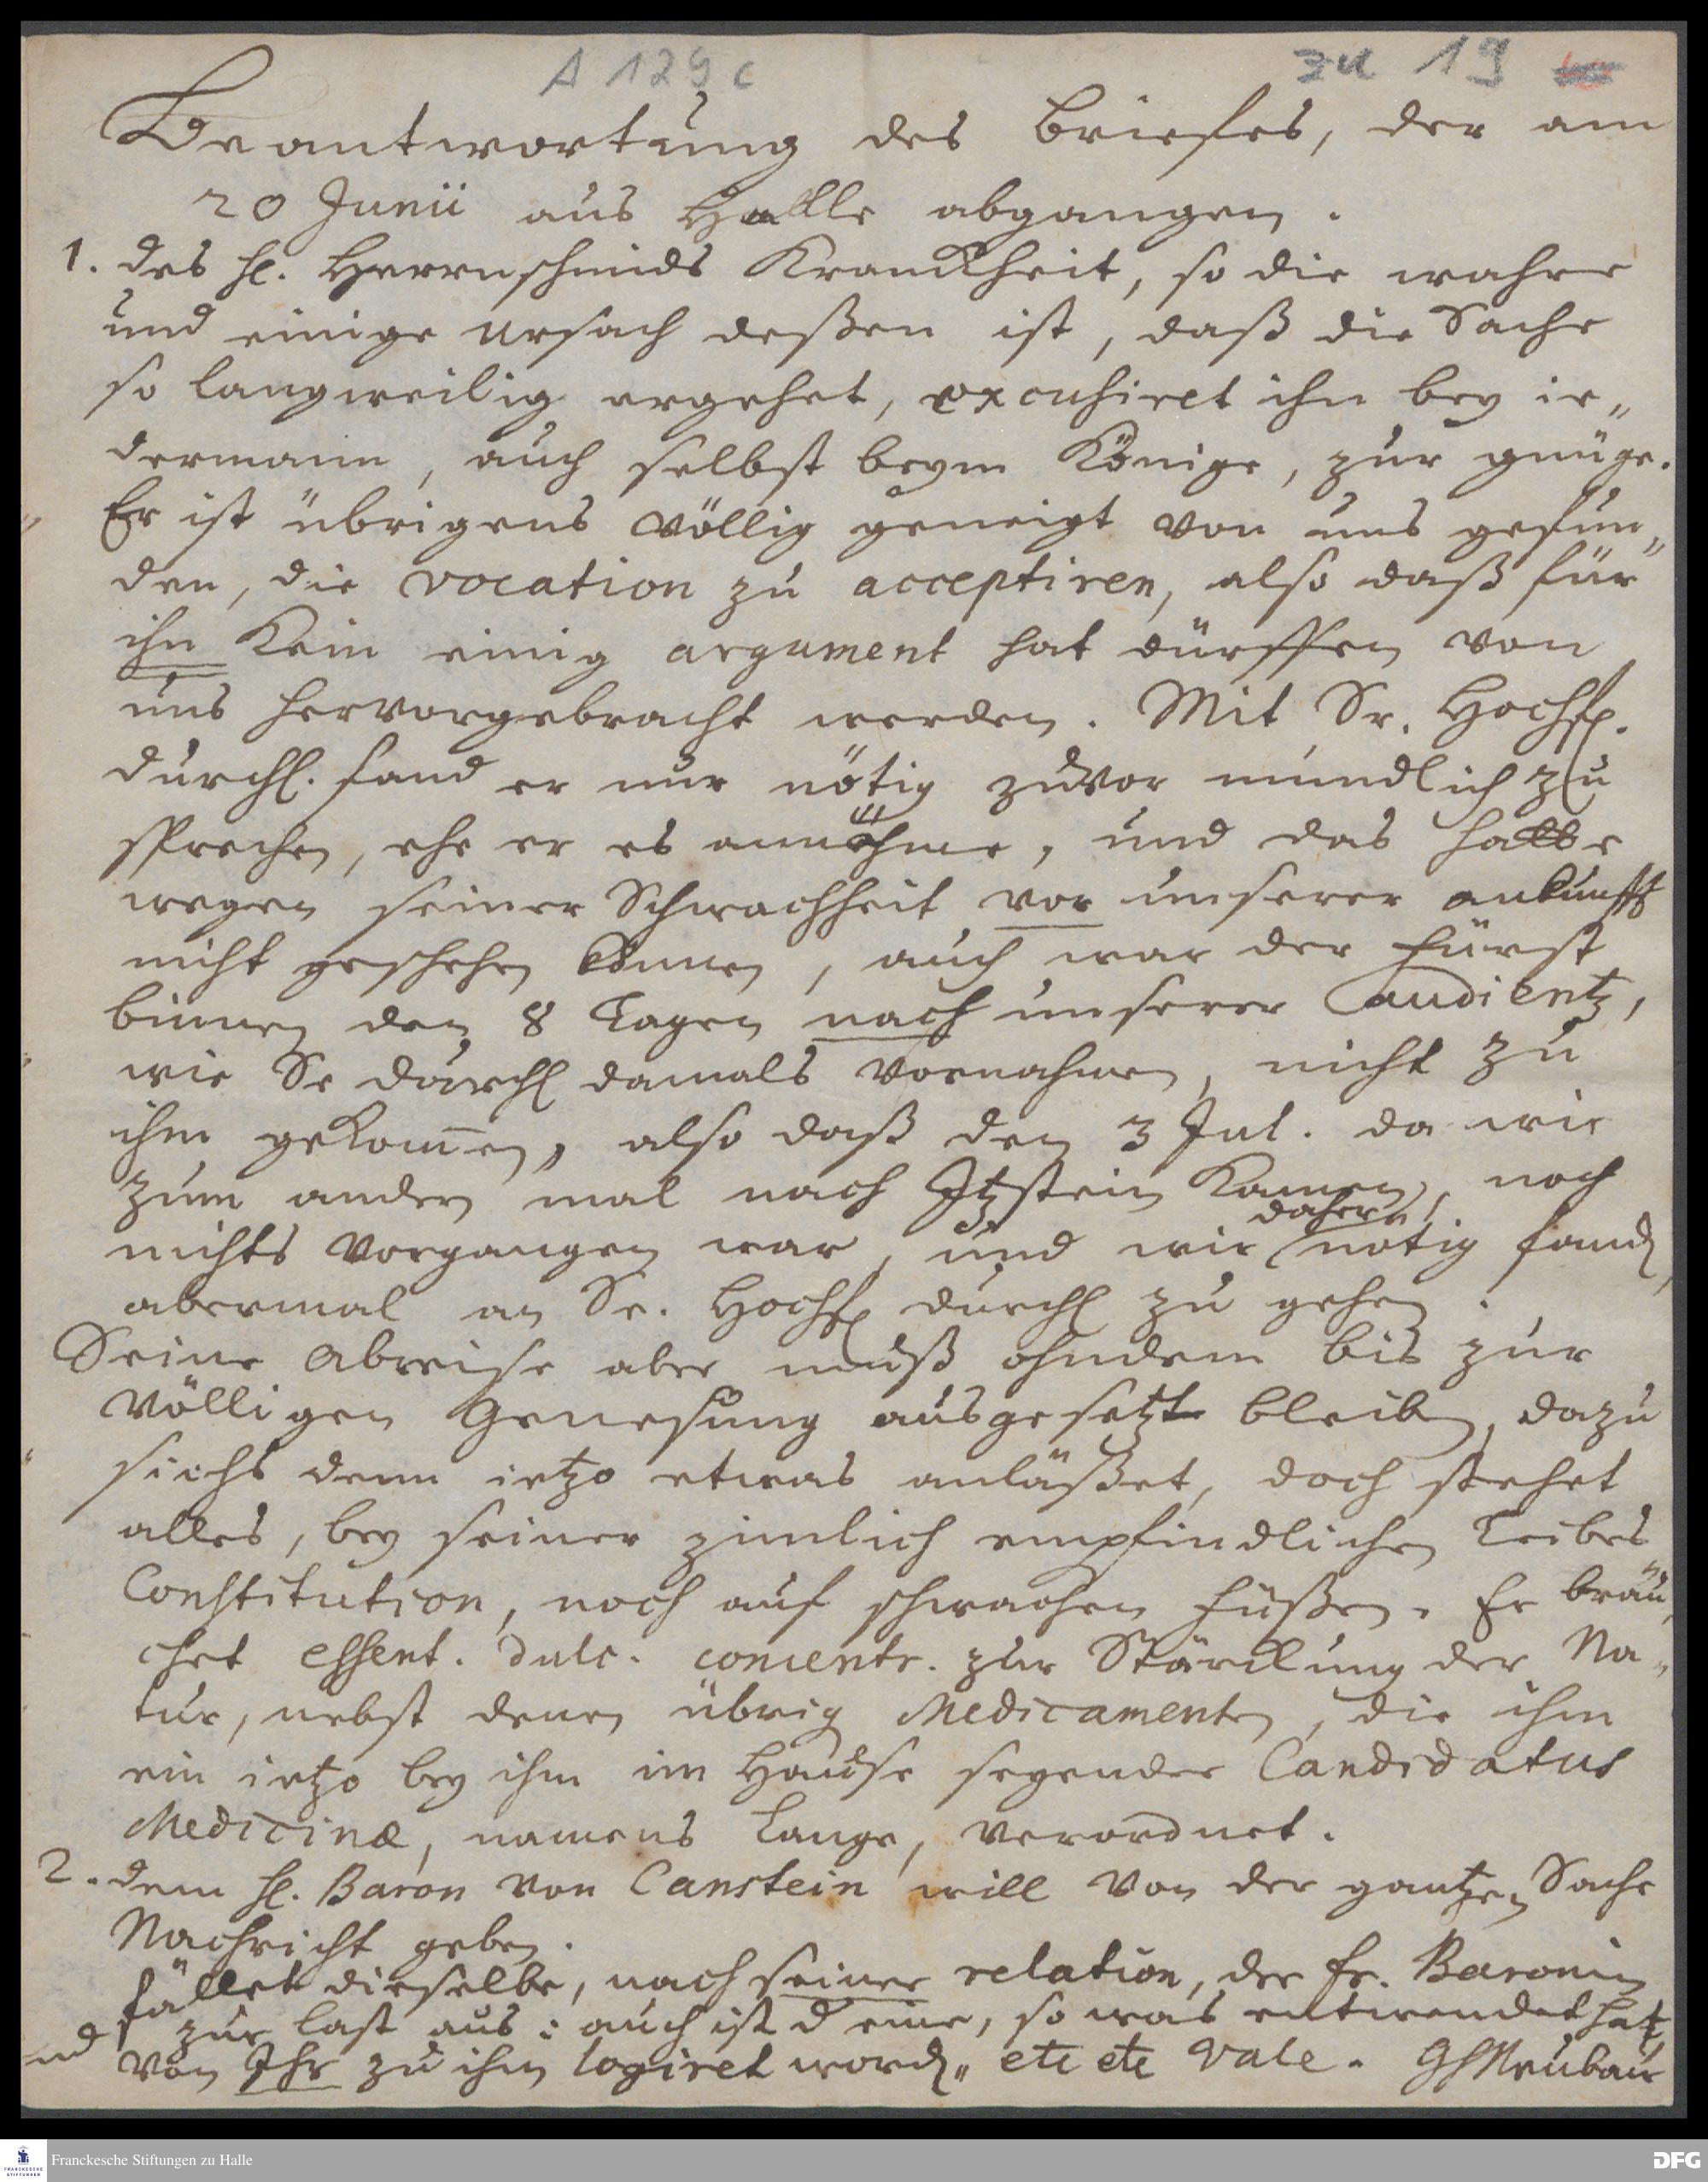 A 129 c
zu 19
Beantwortung des Briefes, der am
20 Junii aus Halle abgangen.
1. des H. Herrnschmids Kranckheit, so die wahre
und einige Ursach deßen ist, daß die Sache
so langweilig ergehet, excusiret ihn bey ie„
dermann, auch selbst beym Könige, zur gnüge.
Er ist übrigens völlig geneigt von uns gefun„
den, die vocation zu acceptiren, also daß für
ihn kein einig argument hat dürffen von
uns hervorgebracht werden. Mit Sr. Hochf.
durchl. fand er nur nötig zuvor mündlich zu
sprechen, ehe er es annähme, und das hatte
wegen seiner Schwachheit vor unserer ankunfft
nicht geschehen können, auch war der Fürst
binnen den 8 Tagen nach unserer audientz,
wie Se durchl damals vornahmen, nicht zu
ihm gekommen, also daß den 3 Jul. da wir
zum andern mal nach Itzstein kamen, noch
daher
nichts vorgangen war, und wir nötig fanden
abermal an Sr. Hochf durchl zu gehen.
Seine Abreise aber muß ohndem bis zur
völligen Genesung ausgesetzt bleiben, dazu
sichs denn ietzo etwas anläßet, doch stehet
alles, bey seiner zimlich empfindlichen Leibes
Constitution, noch auf schwachen füßen. Er brau„
chet essent. dulc. concentr. zur Stärckung der Na„
tur, nebst denen übrig Medicamenten, die ihm
ein ietzo bey ihm im Hause seyender Candidatus
Medicinæ, namens Lange, verordnet.
2. dem H. Baron von Canstein will von der gantzen Sache
Nachricht geben.
fället dieselbe, nach seiner relation, der Fr. Baronin
zur last aus: auch ist d eine, so was entwendet hat,
von Ihr zu ihm logiret worden„ etc etc Vale. GHNeubaur
Franckesche Stiftungen zu Halle
DFG